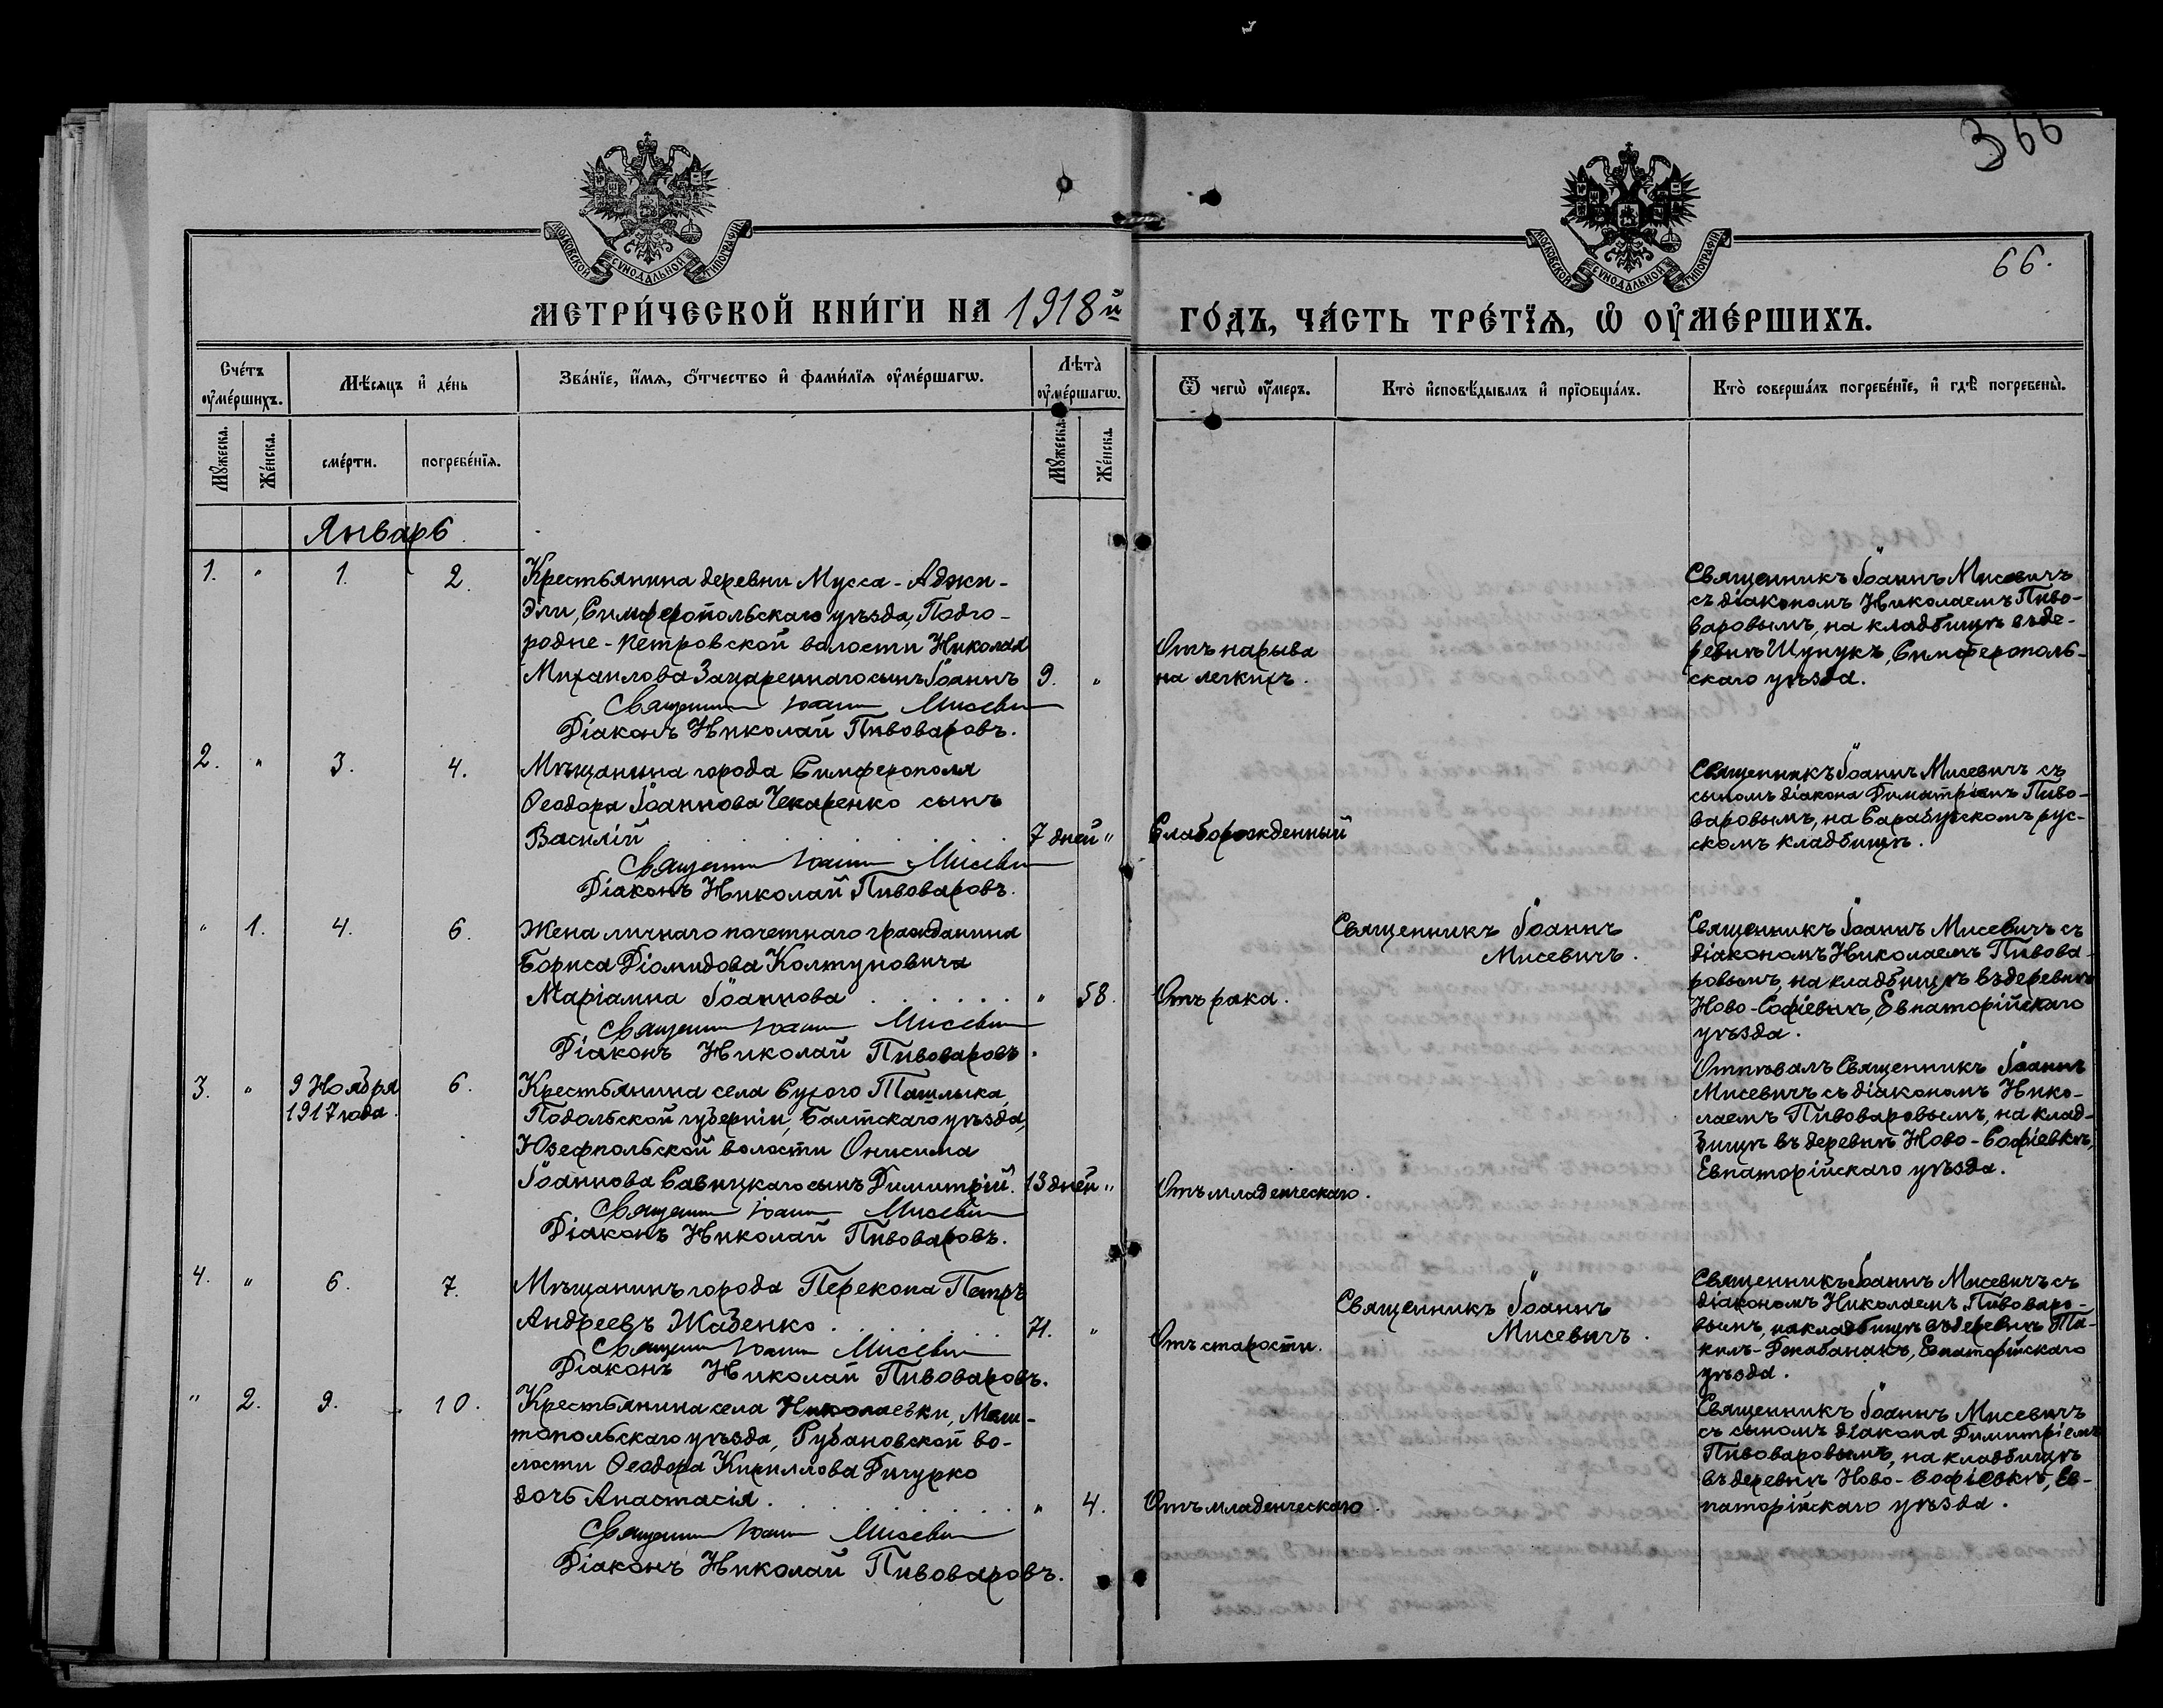 366
МОСКОВСКОЙ СѴНОДАЛЬНОЙ ТИПОГРАФІИ
МОСКОВСКОЙ СѴНОДАЛЬНОЙ ТИПОГРАФІИ
66.
МЕТРИ́ЧЕСКОЙ КНИ́ГИ НА 1918й
ГО́ДЪ, ЧА́СТЬ ТРЕ́ТЇѦ, Ѡ҆ ОУ҆МЕ́РШИХЪ.
Сче́тъ оу҆ме́ршихъ.
Мѣ́сяцъ и҆ де́нь
Зва́нїе, и҆́мѧ, ѻ҆́тчество и҆ фами́лїѧ оу҆ме́ршагѡ.
Лѣта̀ оу҆ме́ршагѡ.
Ѿ чегѡ̀ оу҆́меръ.
Кто̀ и҆сповѣ́дывалъ и҆ прїѡбща́лъ.
Кто̀ соверша́лъ погребе́нїе, и҆ гдѣ̀ погребены̀.
Мꙋ́жеска.
Же́нска.
сме́рти.
погребе́нїѧ.
Мꙋ́жеска.
Же́нска.
Январь.
1. " 1. 2.
Крестьянина деревни Мусса-Аджи-
Эли, Симферопольскаго уѣзда, Подго-
родне-Петровской волости Николая
Михаилова сынъ Іоаннъ 9. "
Священник Іоанн Мисевич
Діаконъ Николай Пивоваровъ.
Отъ нарыва
на легкихъ.
Священникъ Іоаннъ Мисевичъ
съ діакономъ Николаемъ Пиво-
варовымъ, на кладбищѣ въ де-
ревнѣ Шунукъ, Симферополь-
скаго уѣзда.
2. " 3. 4.
Мѣщанина города Симферополя
Ѳеодора Іоаннова Чекаренко сынъ
Василій 7 дней "
Священник Іоанн Мисевич
Діаконъ Николай Пивоваровъ.
Слаборожденный
Священникъ Іоаннъ Мисевичъ съ
сыномъ діакона Димитріемъ Пиво-
варовымъ, на Сарабузскомъ рус-
скомъ кладбищѣ.
" 1. 4. 6.
Жена личнаго почетнаго гражданина
Бориса Діомидова Колтуновича
Маріамна Іоаннова " 58.
Священник Іоанн Мисевич
Діаконъ Николай Пивоваровъ.
Отъ рака.
Священникъ Іоаннъ
Мисевичъ.
Священникъ Іоаннъ Мисевичъ съ
діакономъ Николаемъ Пивова-
ровымъ, на кладбищѣ въ деревнѣ
Ново-Софіевкѣ, Евпаторійскаго
уѣзда.
3. " 9 Ноября 6.
1917 года.
Крестьянина села Сухого Ташлыка,
Подольской губерніи, Балтскаго уѣзда,
Юзефпольской волости Онисима
Іоаннова Савицкаго сынъ Димитрій. 13 дней "
Священник Іоанн Мисевич
Діаконъ Николай Пивоваровъ.
Отъ младенческаго.
Отпѣвалъ Священникъ Іоаннъ
Мисевичъ съ діакономъ Нико-
лаемъ Пивоваровымъ, на клад-
бищѣ въ деревнѣ Ново-Софіевкѣ,
Евпаторійскаго уѣзда.
4. " 6. 7.
Мѣщанинъ города Перекопа Петръ
Андреевъ Жабенко 71. "
Священник Іоанн Мисевич
Діаконъ Николай Пивоваровъ.
Отъ старости.
Священникъ Іоаннъ
Мисевичъ.
Священникъ Іоаннъ Мисевичъ съ
діакономъ Николаемъ Пивоваро-
вымъ, на кладбищѣ въ деревнѣ
Евпаторійскаго
уѣзда.
" 2. 9. 10.
Крестьянина села Николаевки, Мели-
топольскаго уѣзда, Рубановской во-
лости Ѳеодора Кириллова Гигурко
дочь Анастасія. " 4.
Священник Іоанн Мисевич
Діаконъ Николай Пивоваровъ.
Отъ младенческаго.
Священникъ Іоаннъ Мисевичъ
съ сыномъ діакона Димитріемъ
Пивоваровымъ, на кладбищѣ
въ деревнѣ Ново-Софіевкѣ, Ев-
паторійскаго уѣзда.